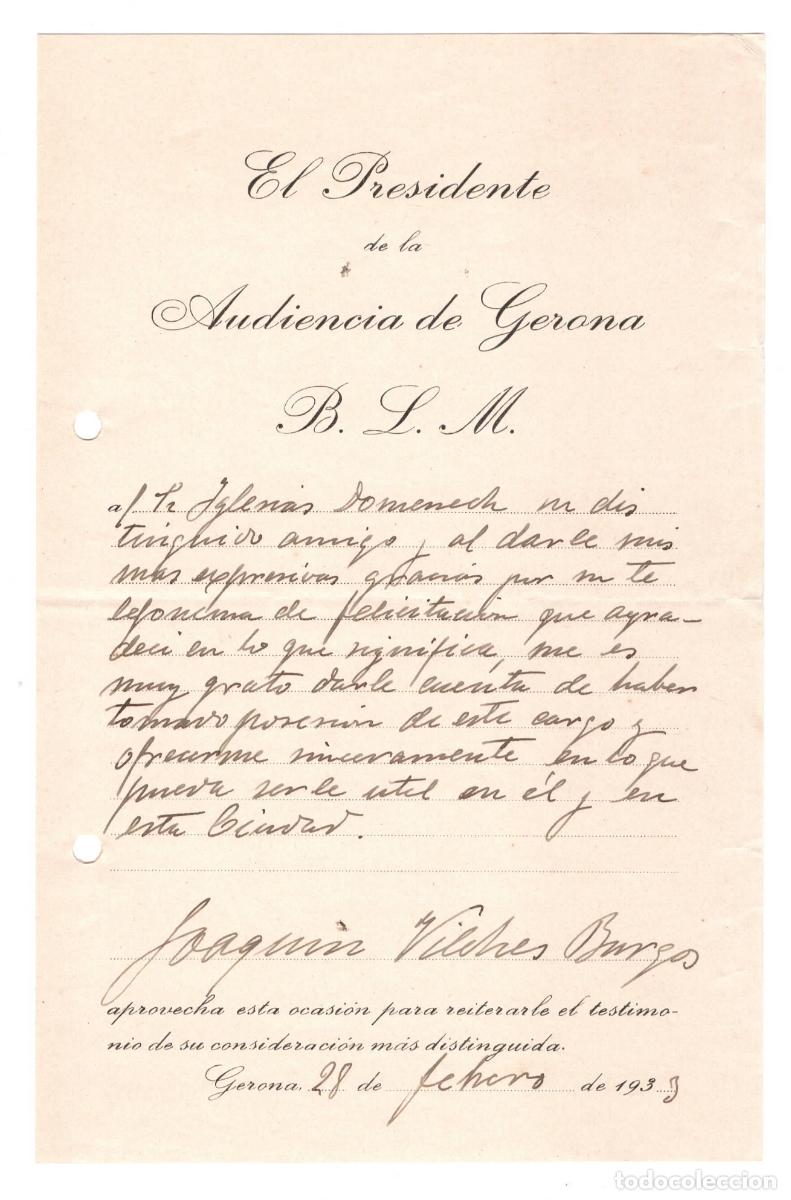 El Presidente
de la
Audiencia de Gerona
B. L. M.
al Sr Iglesias Domenech su dis
tinguido amigo y al darle mis
mas expresivas gracias por su te
lefonema de felicitación que agra-
deci en lo que significa, me es
muy grato darle cuenta de haber
tomado posesión de este cargo y
ofrecerme sinceramente en lo que
pueda serle util en él y en
esta Ciudad.
Joaquin Vilches Burgos
aprovecha esta ocasión para reiterarle el testimo-
nio de su consideración más distinguida.
Gerona, 28 de febrero de 1933
todocoleccion